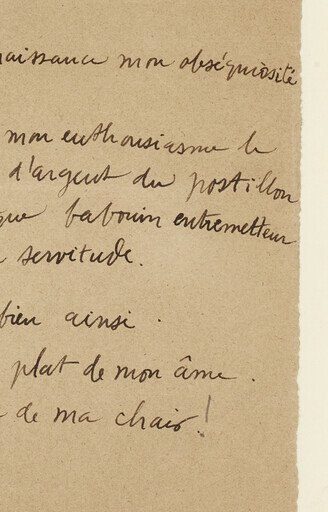 naissance mon obséquiosité
mon enthousiasme le
d'argent du postillon
que babouin entremetteur
servitude.
bien ainsi.
plat de mon âme.
de ma chair!